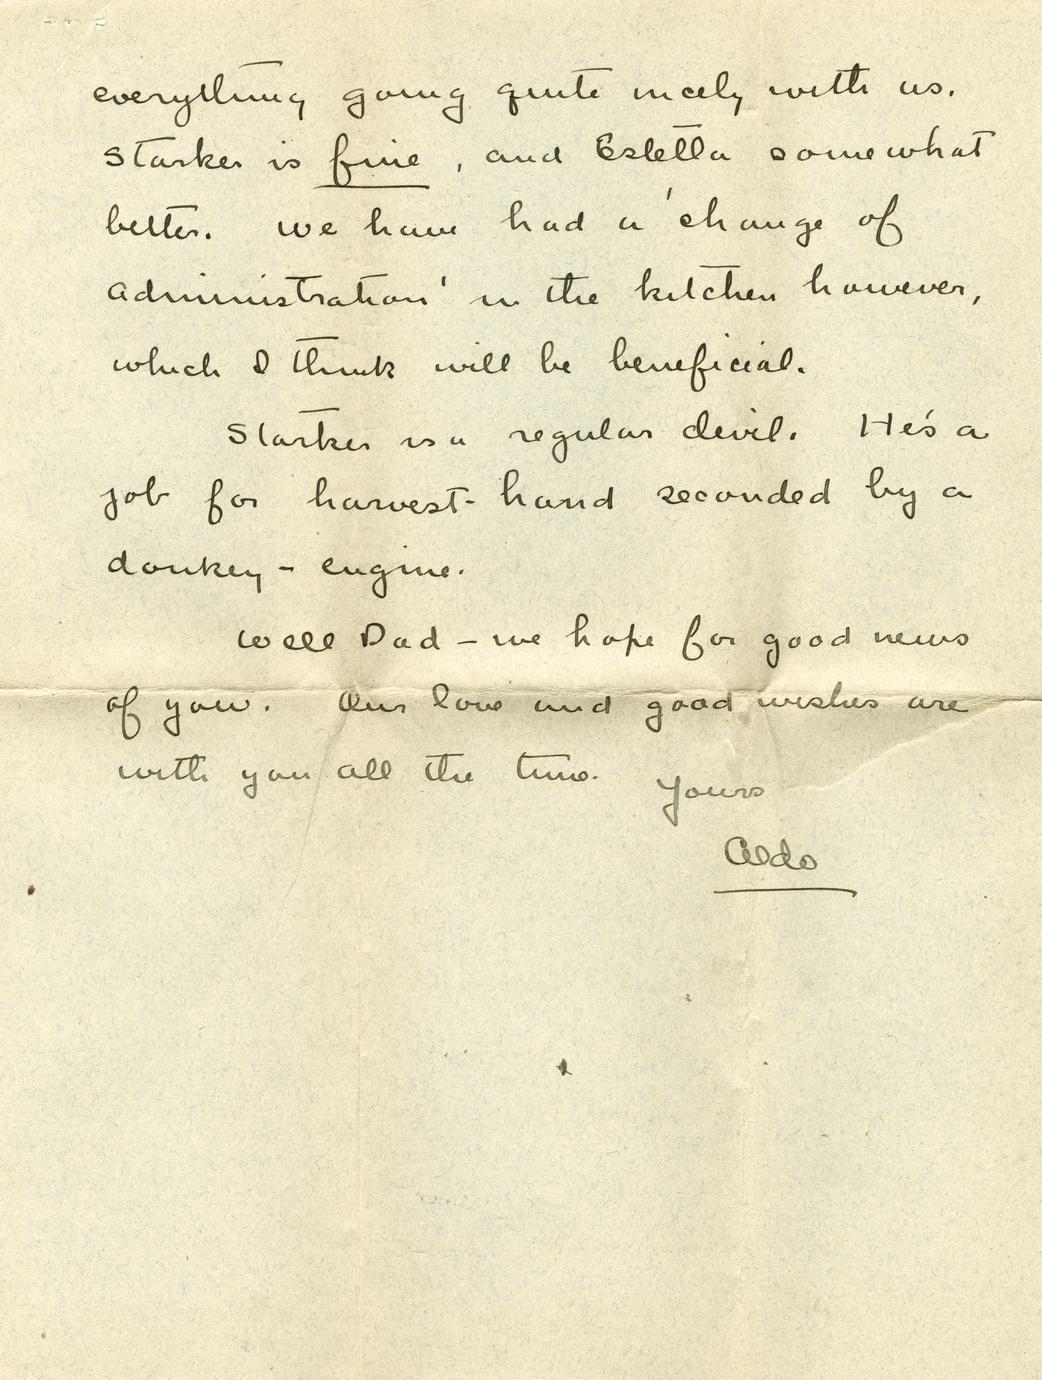 everything going quite nicely with us.
Starker is fine, and Estella somewhat
better. We have had a 'change of
administration' in the kitchen however,
which I think will be beneficial.
Starker is a regular devil. He's a
job for harvest-hand seconded by a
donkey-engine.
Well Dad – we hope for good news
of you. Our love and good wishes are
with you all the time.
Yours
Aldo